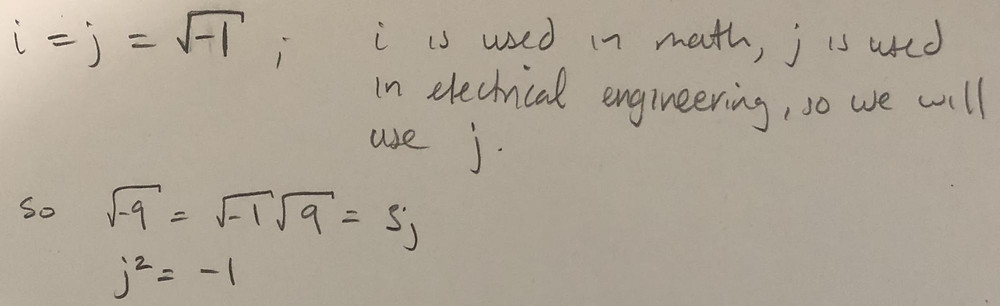 i = j = √-1 ; i is used in math, j is used
in electrical engineering, so we will
use j.
so √-9 = √-1 √9 = 3j
j² = -1